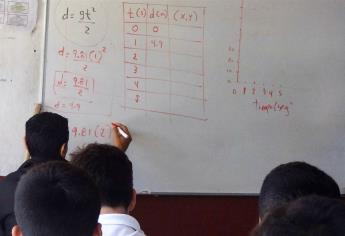 d = gt²
2
d = 9.81(1)²
2
d = 9.81
2
d = 4.9
9.81(2)
t(s) d(m) (x,y)
0 0
1 4.9
2
3
4
5
0 1 2 3 4 5